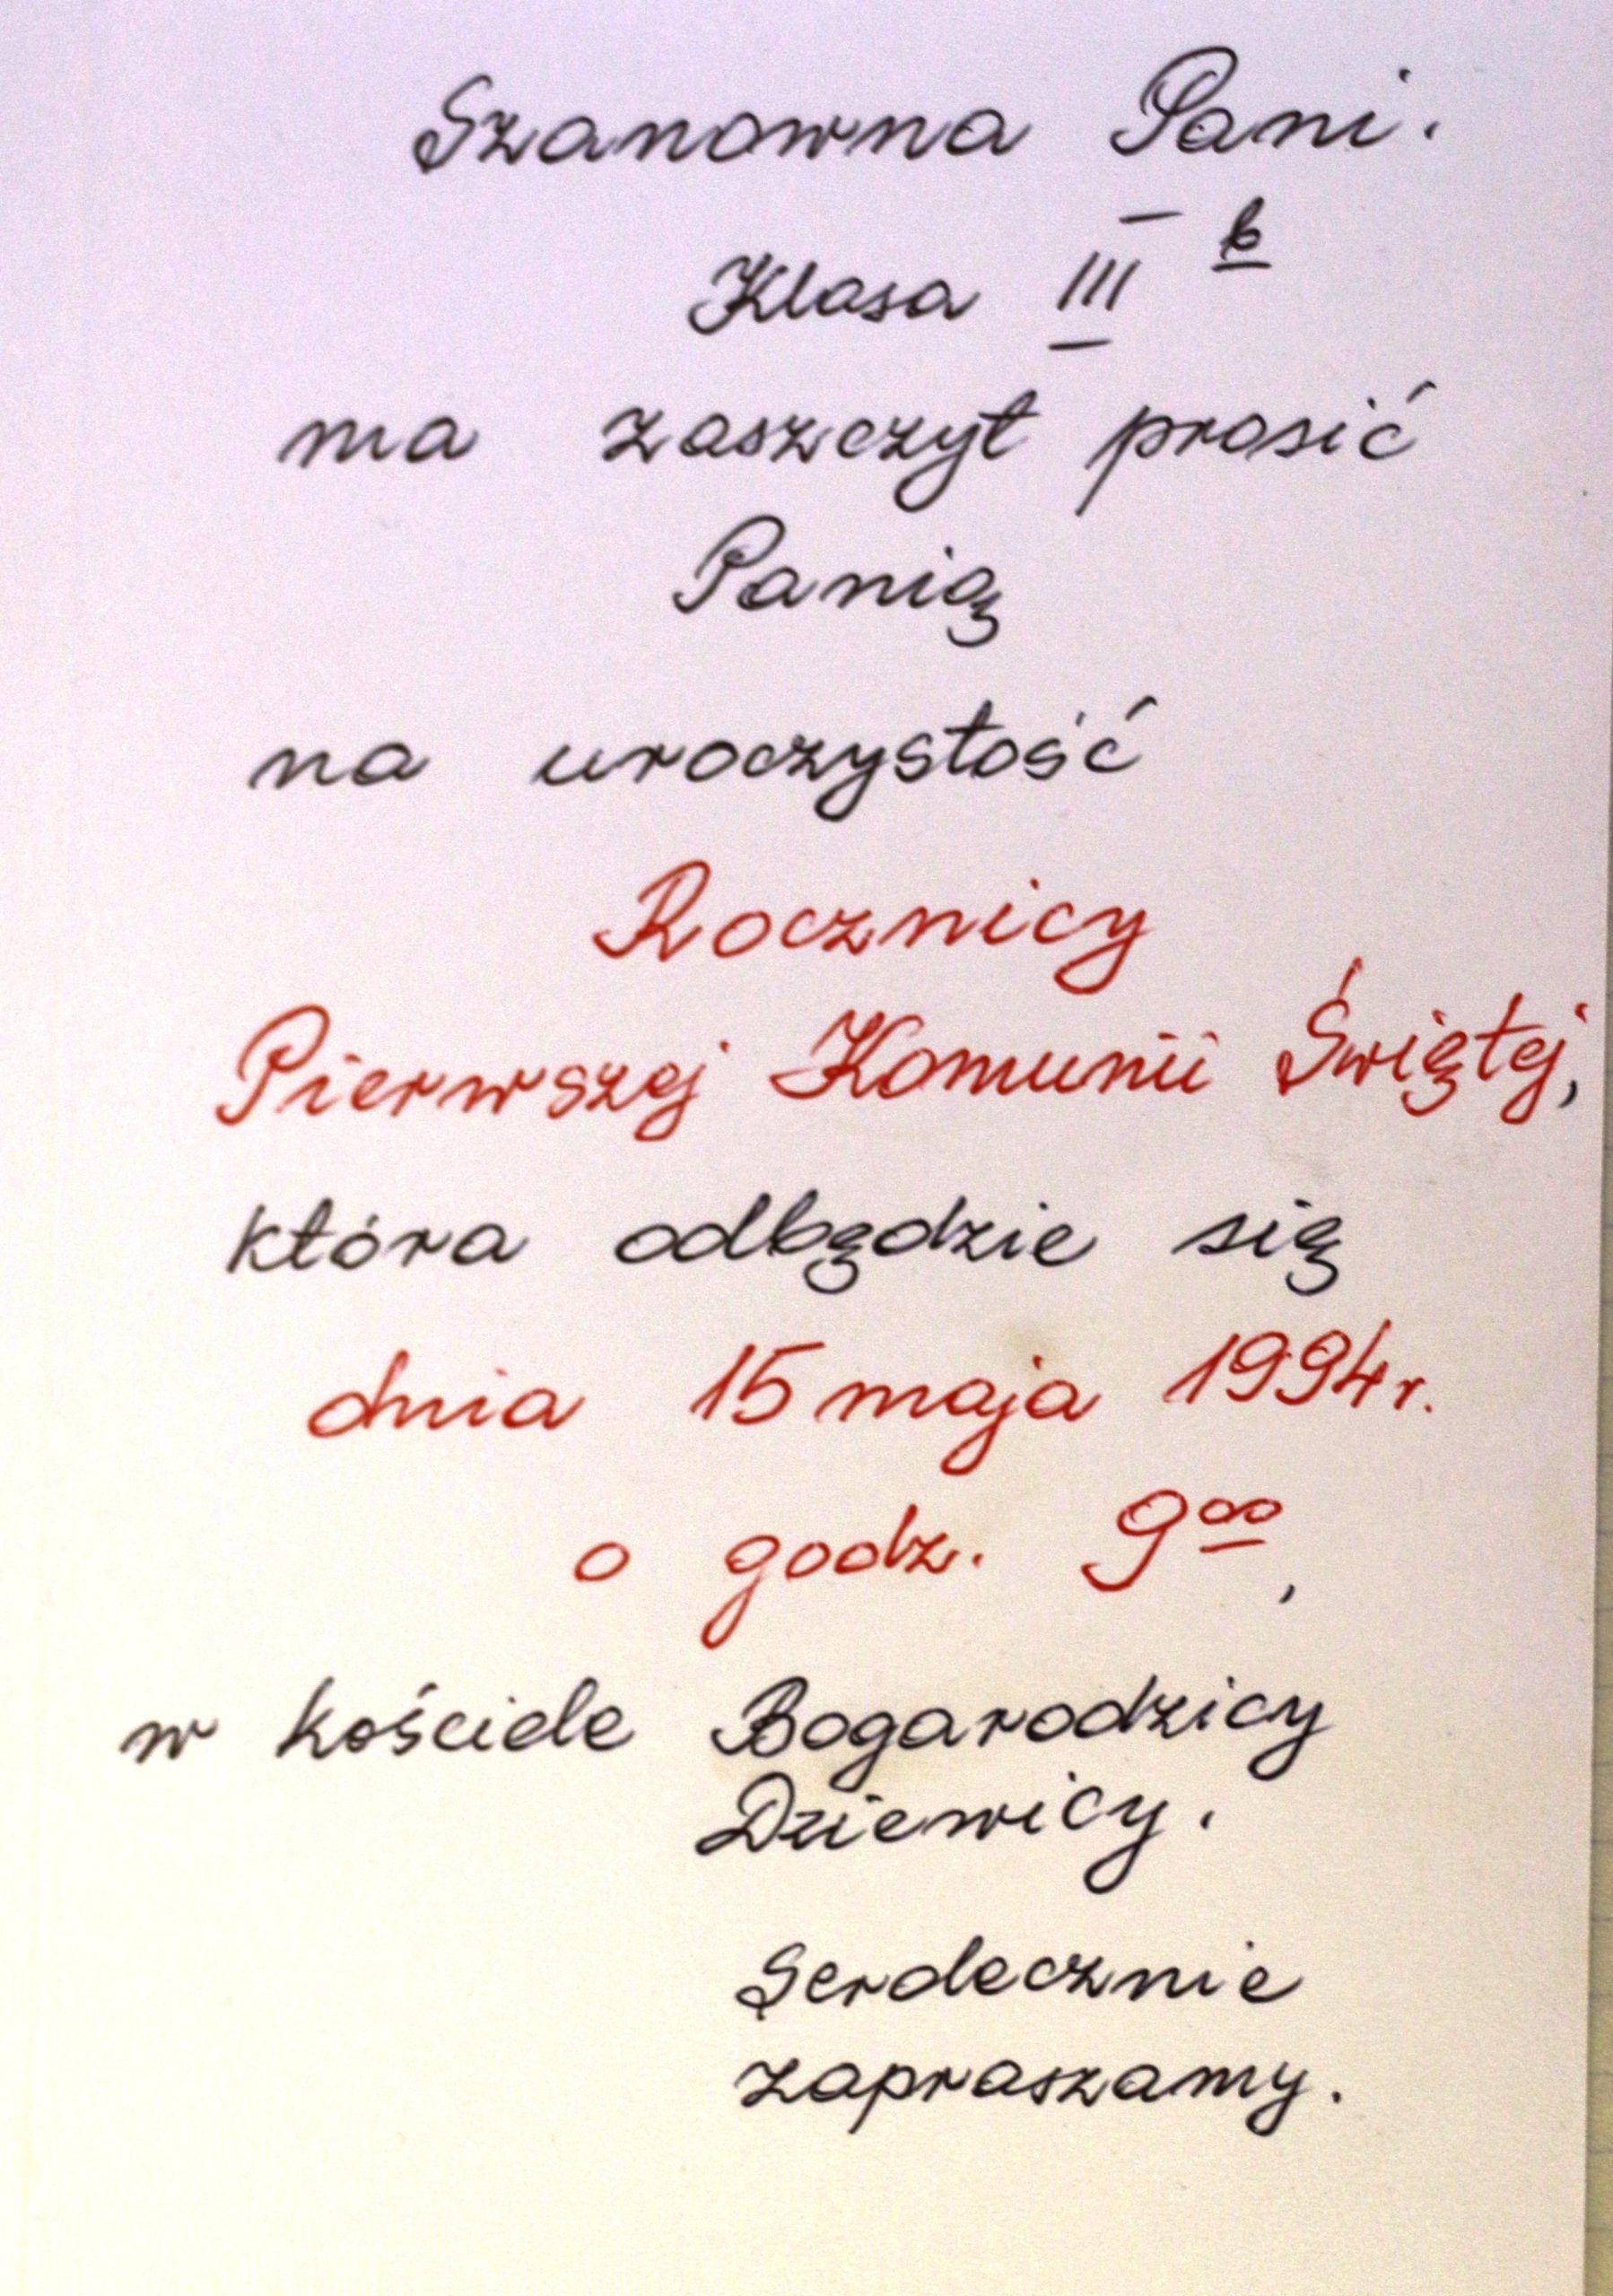 Szanowna Pani.
Klasa III b
ma zaszczyt prosić
Panią
na uroczystość
Rocznicy
Pierwszej Komunii Świętej,
która odbędzie się
dnia 15 maja 1994 r.
o godz. 9 00,
w kościele Bogarodzicy
Dziewicy.
Serdecznie
zapraszamy.